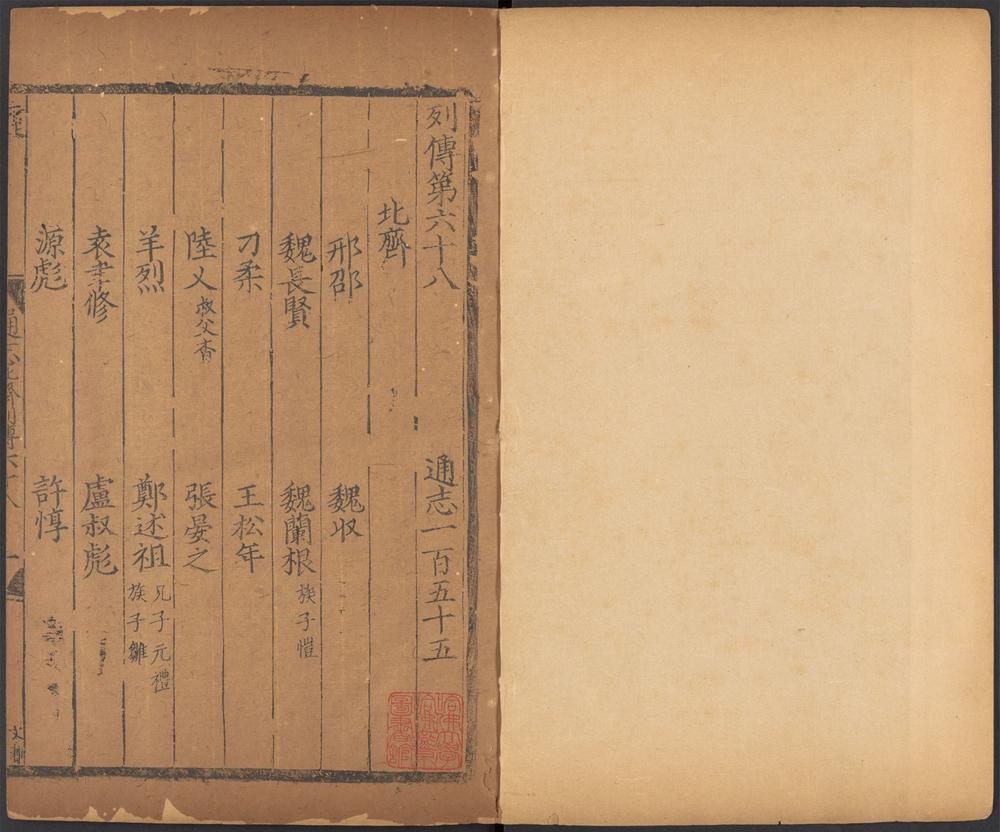 列傳第六十八 通志一百五十五
北齊
邢邵 魏收
魏長賢 魏蘭根 族子愷
刁柔 王松年
陸乂 叔父杳 張晏之
羊烈 鄭述祖 兄子元禮 族子雛
袁聿修 盧叔彪
源彪 許惇
通志北齊列傳六十八 一